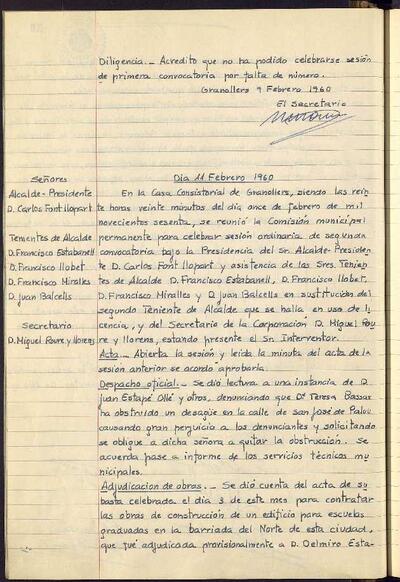 Diligencia.- Acredito que no ha podido celebrarse sesión
de primera convocatoria por falta de número.
Granollers 9 Febrero 1960
El Secretario
Señores
Alcalde-Presidente
D. Carlos Font Llopart
Tenientes de Alcalde
D. Francisco Estabanell
D. Francisco Llobet
D. Francisco Miralles
D. Juan Balcells
Secretario
D. Miguel Roure y Llorens
Dia 11 Febrero 1960
En la Casa Consistorial de Granollers, siendo las vein
te horas veinte minutos del día once de febrero de mil
novecientos sesenta, se reunió la Comisión municipal
permanente para celebrar sesión ordinaria de segunda
convocatoria bajo la Presidencia del Sr. Alcalde-Presiden
te D. Carlos Font Llopart y asistencia de los Sres. Tenien
tes de Alcalde D. Francisco Estabanell, D. Francisco Llobet,
D. Francisco Miralles y D. Juan Balcells en sustitución del
segundo Teniente de Alcalde que se halla en uso de li
cencia, y del Secretario de la Corporación D. Miguel Rou
re y Llorens, estando presente el Sr. Interventor.
Acta.- Abierta la sesión y leída la minuta del acta de la
sesión anterior se acordó aprobarla.
Despacho oficial.- Se dió lectura a una instancia de D.
Juan Estapé Ollé y otros, denunciando que Dª Teresa Bassas
ha obstruido un desagüe en la calle de San José de Palou
causando gran perjuicio a los denunciantes y solicitando
se obligue a dicha señora a quitar la obstrucción. Se
acuerda pase a informe de los servicios técnicos mu
nicipales.
Adjudicacion de obras.- Se dió cuenta del acta de su
basta celebrada el día 3 de este mes para contratar
las obras de construcción de un edificio para escuelas
graduadas en la barriada del Norte de esta ciudad,
que fué adjudicada provisionalmente a D. Delmiro Esta-